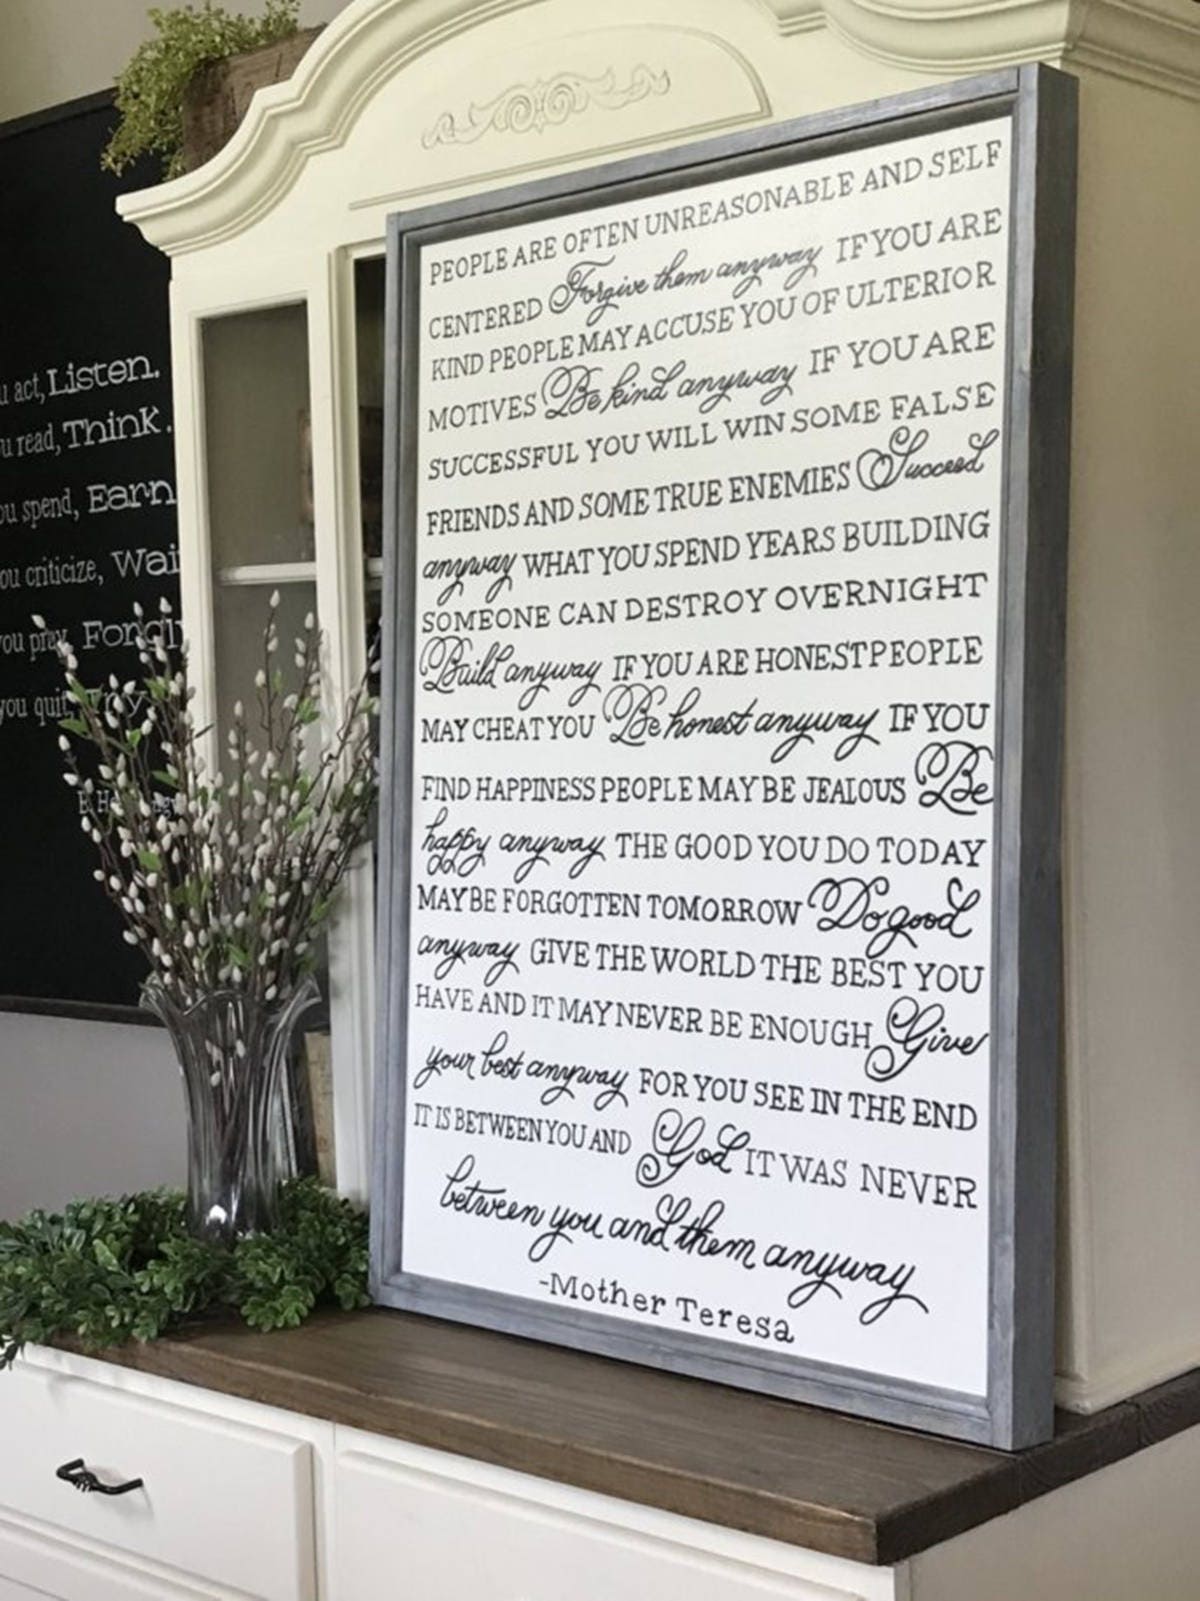 u act, Listen.
u read, Think.
ou spend, Earn
ou criticize, Wai
you pray, Forgi
you quit, Try
PEOPLE ARE OFTEN UNREASONABLE AND SELF
CENTERED Forgive them anyway IF YOU ARE
KIND PEOPLE MAY ACCUSE YOU OF ULTERIOR
MOTIVES Be kind anyway IF YOU ARE
SUCCESSFUL YOU WILL WIN SOME FALSE
FRIENDS AND SOME TRUE ENEMIES Succeed
anyway WHAT YOU SPEND YEARS BUILDING
SOMEONE CAN DESTROY OVERNIGHT
Build anyway IF YOU ARE HONEST PEOPLE
MAY CHEAT YOU Be honest anyway IF YOU
FIND HAPPINESS PEOPLE MAY BE JEALOUS Be
happy anyway THE GOOD YOU DO TODAY
MAY BE FORGOTTEN TOMORROW Do good
anyway GIVE THE WORLD THE BEST YOU
HAVE AND IT MAY NEVER BE ENOUGH Give
your best anyway FOR YOU SEE IN THE END
IT IS BETWEEN YOU AND God IT WAS NEVER
between you and them anyway
-Mother Teresa